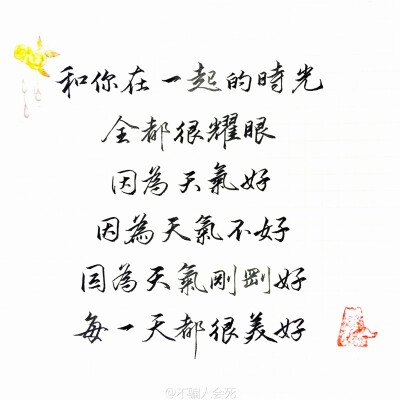 和你在一起的時光
全都很耀眼
因為天氣好
因為天氣不好
因為天氣剛剛好
每一天都很美好
@不骗人会死